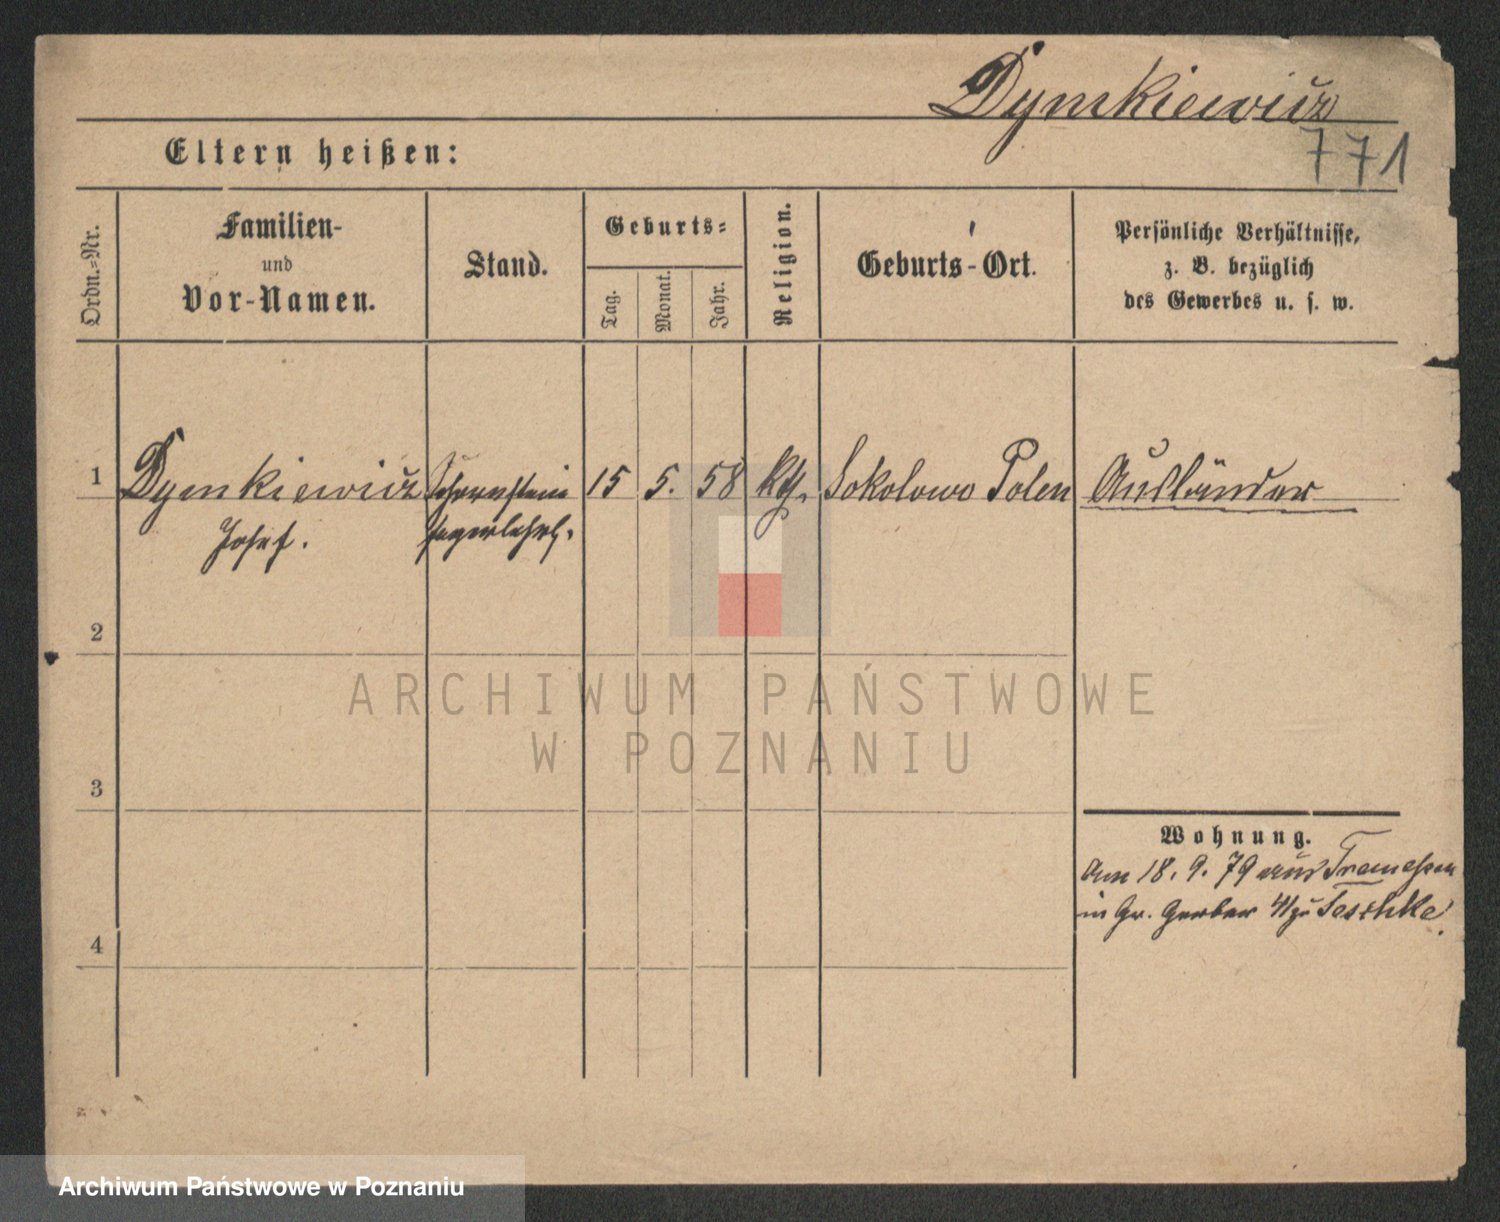 Dymkiewicz
771
Eltern heißen:
Ordn.-Nr.
Familien-
und
Vor-Namen.
Stand.
Geburts-
Tag.
Monat.
Jahr.
Religion.
Geburts-Ort.
Persönliche Verhältnisse,
z. B. bezüglich
des Gewerbes u. s. w.
1 Dymkiewicz Schornstein 15 5. 58 kth. Sokolowo Polen Ausländer
Josef. fegerlehrl.
2
3
4
Wohnung.
Am 18. 9. 79 aus Tremessen
in Gr. Gerber 41 zu Jeschke.
ARCHIWUM PAŃSTWOWE
W POZNANIU
Archiwum Państwowe w Poznaniu